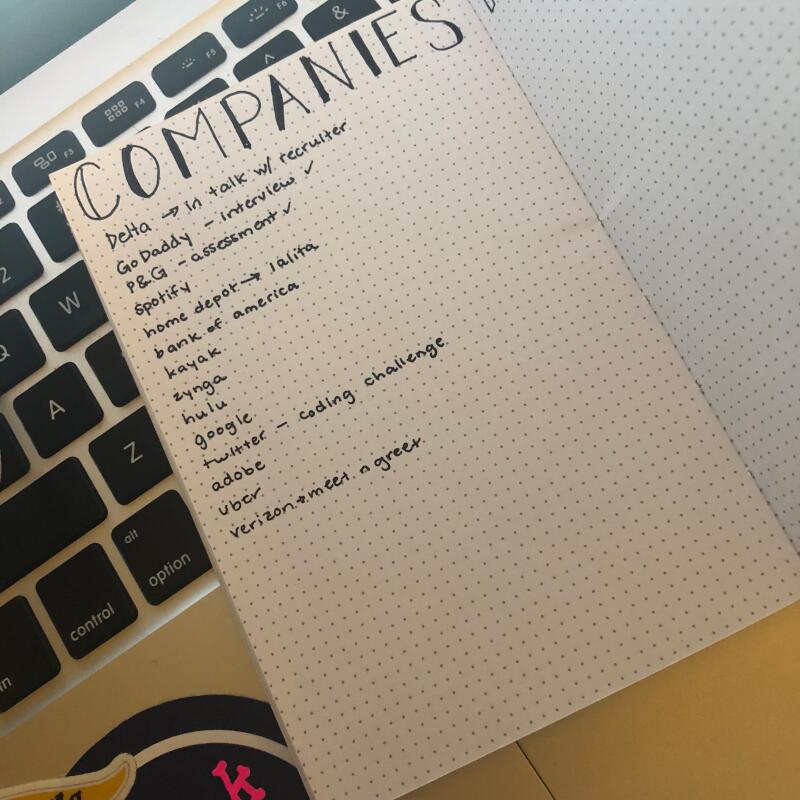 COMPANIES
Delta → in talk w/ recruiter
GoDaddy - interview ✓
P&G - assessment ✓
spotify
home depot → lalita
bank of america
kayak
zynga
hulu
google
twitter - coding challenge
adobe
uber
verizon → meet n greet
F3
F4
F5
F6
&
2
W
Q
A
Z
alt
option
control
k